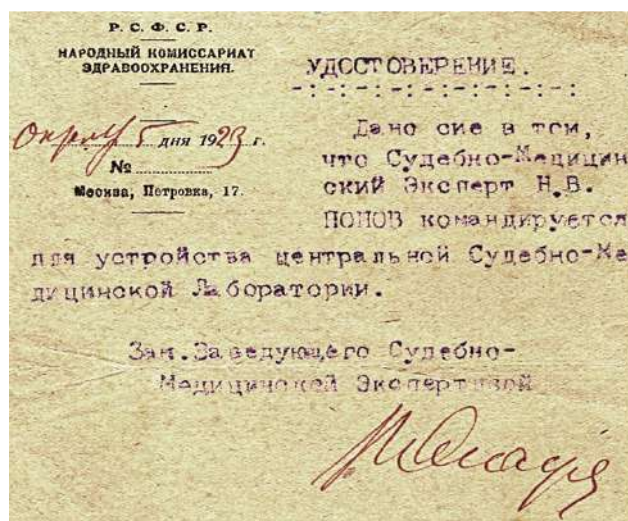 Р. С. Ф. С. Р.
НАРОДНЫЙ КОМИССАРИАТ
ЗДРАВООХРАНЕНИЯ.
5 дня 1923 г.
№
Москва, Петровка, 17.
УДОСТОВЕРЕНИЕ.
-:-:-:-:-:-:-:-:-:
Дано сие в том,
что Судебно-Медицин
ский Эксперт Н.В.
ПОПОВ командируется
для устройства центральной Судебно-Ме
дицинской Лаборатории.
Зам.Заведующего Судебно-
Медицинской Экспертизой